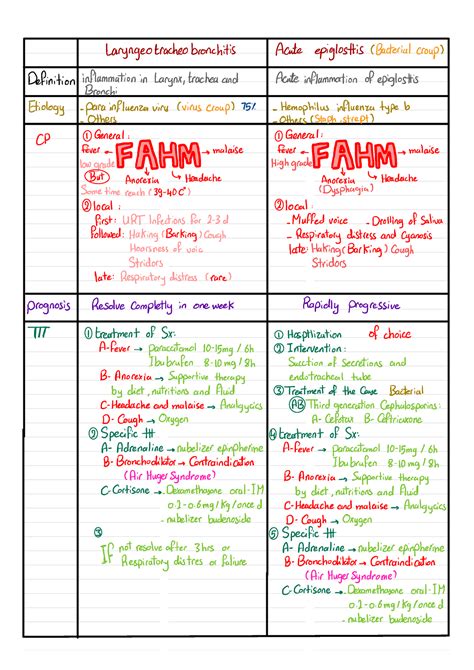 Laryngeo tracheo bronchitis
Acute epiglottis (Bacterial croup)
Definition
inflammation in Larynx, trachea and
Bronchi
Acute inflammation of epiglottis
Etiology
- Para influenza viru (virus croup) 75%
- Others
- Hemophilus influenza type b
- Others (Staph, strept)
CP
① General:
fever FAHM malaise
low grade
Anorexia Headache
But
Some time reach (39-40 C°)
② local:
first: URT Infections for 2-3 d
followed: Haking (Barking) Cough
Hoarsness of voic
Stridors
late: Respiratory distress (rare)
① General:
fever FAHM malaise
High grade
Anorexia Headache
(Dysphagia)
② local:
- Muffed voice - Drolling of Saliva
- Respiratory distress and Cyanosis
late: Haking (Barking) Cough
Stridors
Prognosis
Resolve Completly in one week
Rapidly progressive
TTT
① treatment of Sx:
A- Fever → paracetamol 10-15mg / 6h
Ibubrufen 8-10 mg / 8h
B- Anorexia → Supportive therapy
by diet, nutritions and Fluid
C- Headache and malaise → Analgycics
D- Cough → Oxygen
② Specific ttt
A- Adrenaline → nubelizer epinpherme
B- Bronchodilator → Contraindication
(Air Huger Syndrome)
C- Cortisone → Dexamethazone oral-IM
0.2-0.6 mg / Kg / once d
- nubelizer budenoside
③
If not resolve after 3 hrs or
Respiratory distres or failure
① Hospitlization of choice
② Intervention:
Suction of Secretions and
endotracheal tube
③ Treatment of the Case Bacterial
AB Third generation Cephalosporins:
A- Cefotax B- Ceftriaxone
④ treatment of Sx:
A- Fever → paracetamol 10-15mg / 6h
Ibubrufen 8-10 mg / 8h
B- Anorexia → Supportive therapy
by diet, nutritions and Fluid
C- Headache and malaise → Analgycics
D- Cough → Oxygen
⑤ Specific ttt
A- Adrenaline → nubelizer epinpherme
B- Bronchodilator → Contraindication
(Air Huger Syndrome)
C- Cortisone → Dexamethazone oral-IM
0.2-0.6 mg / Kg / once d
- nubelizer budenoside